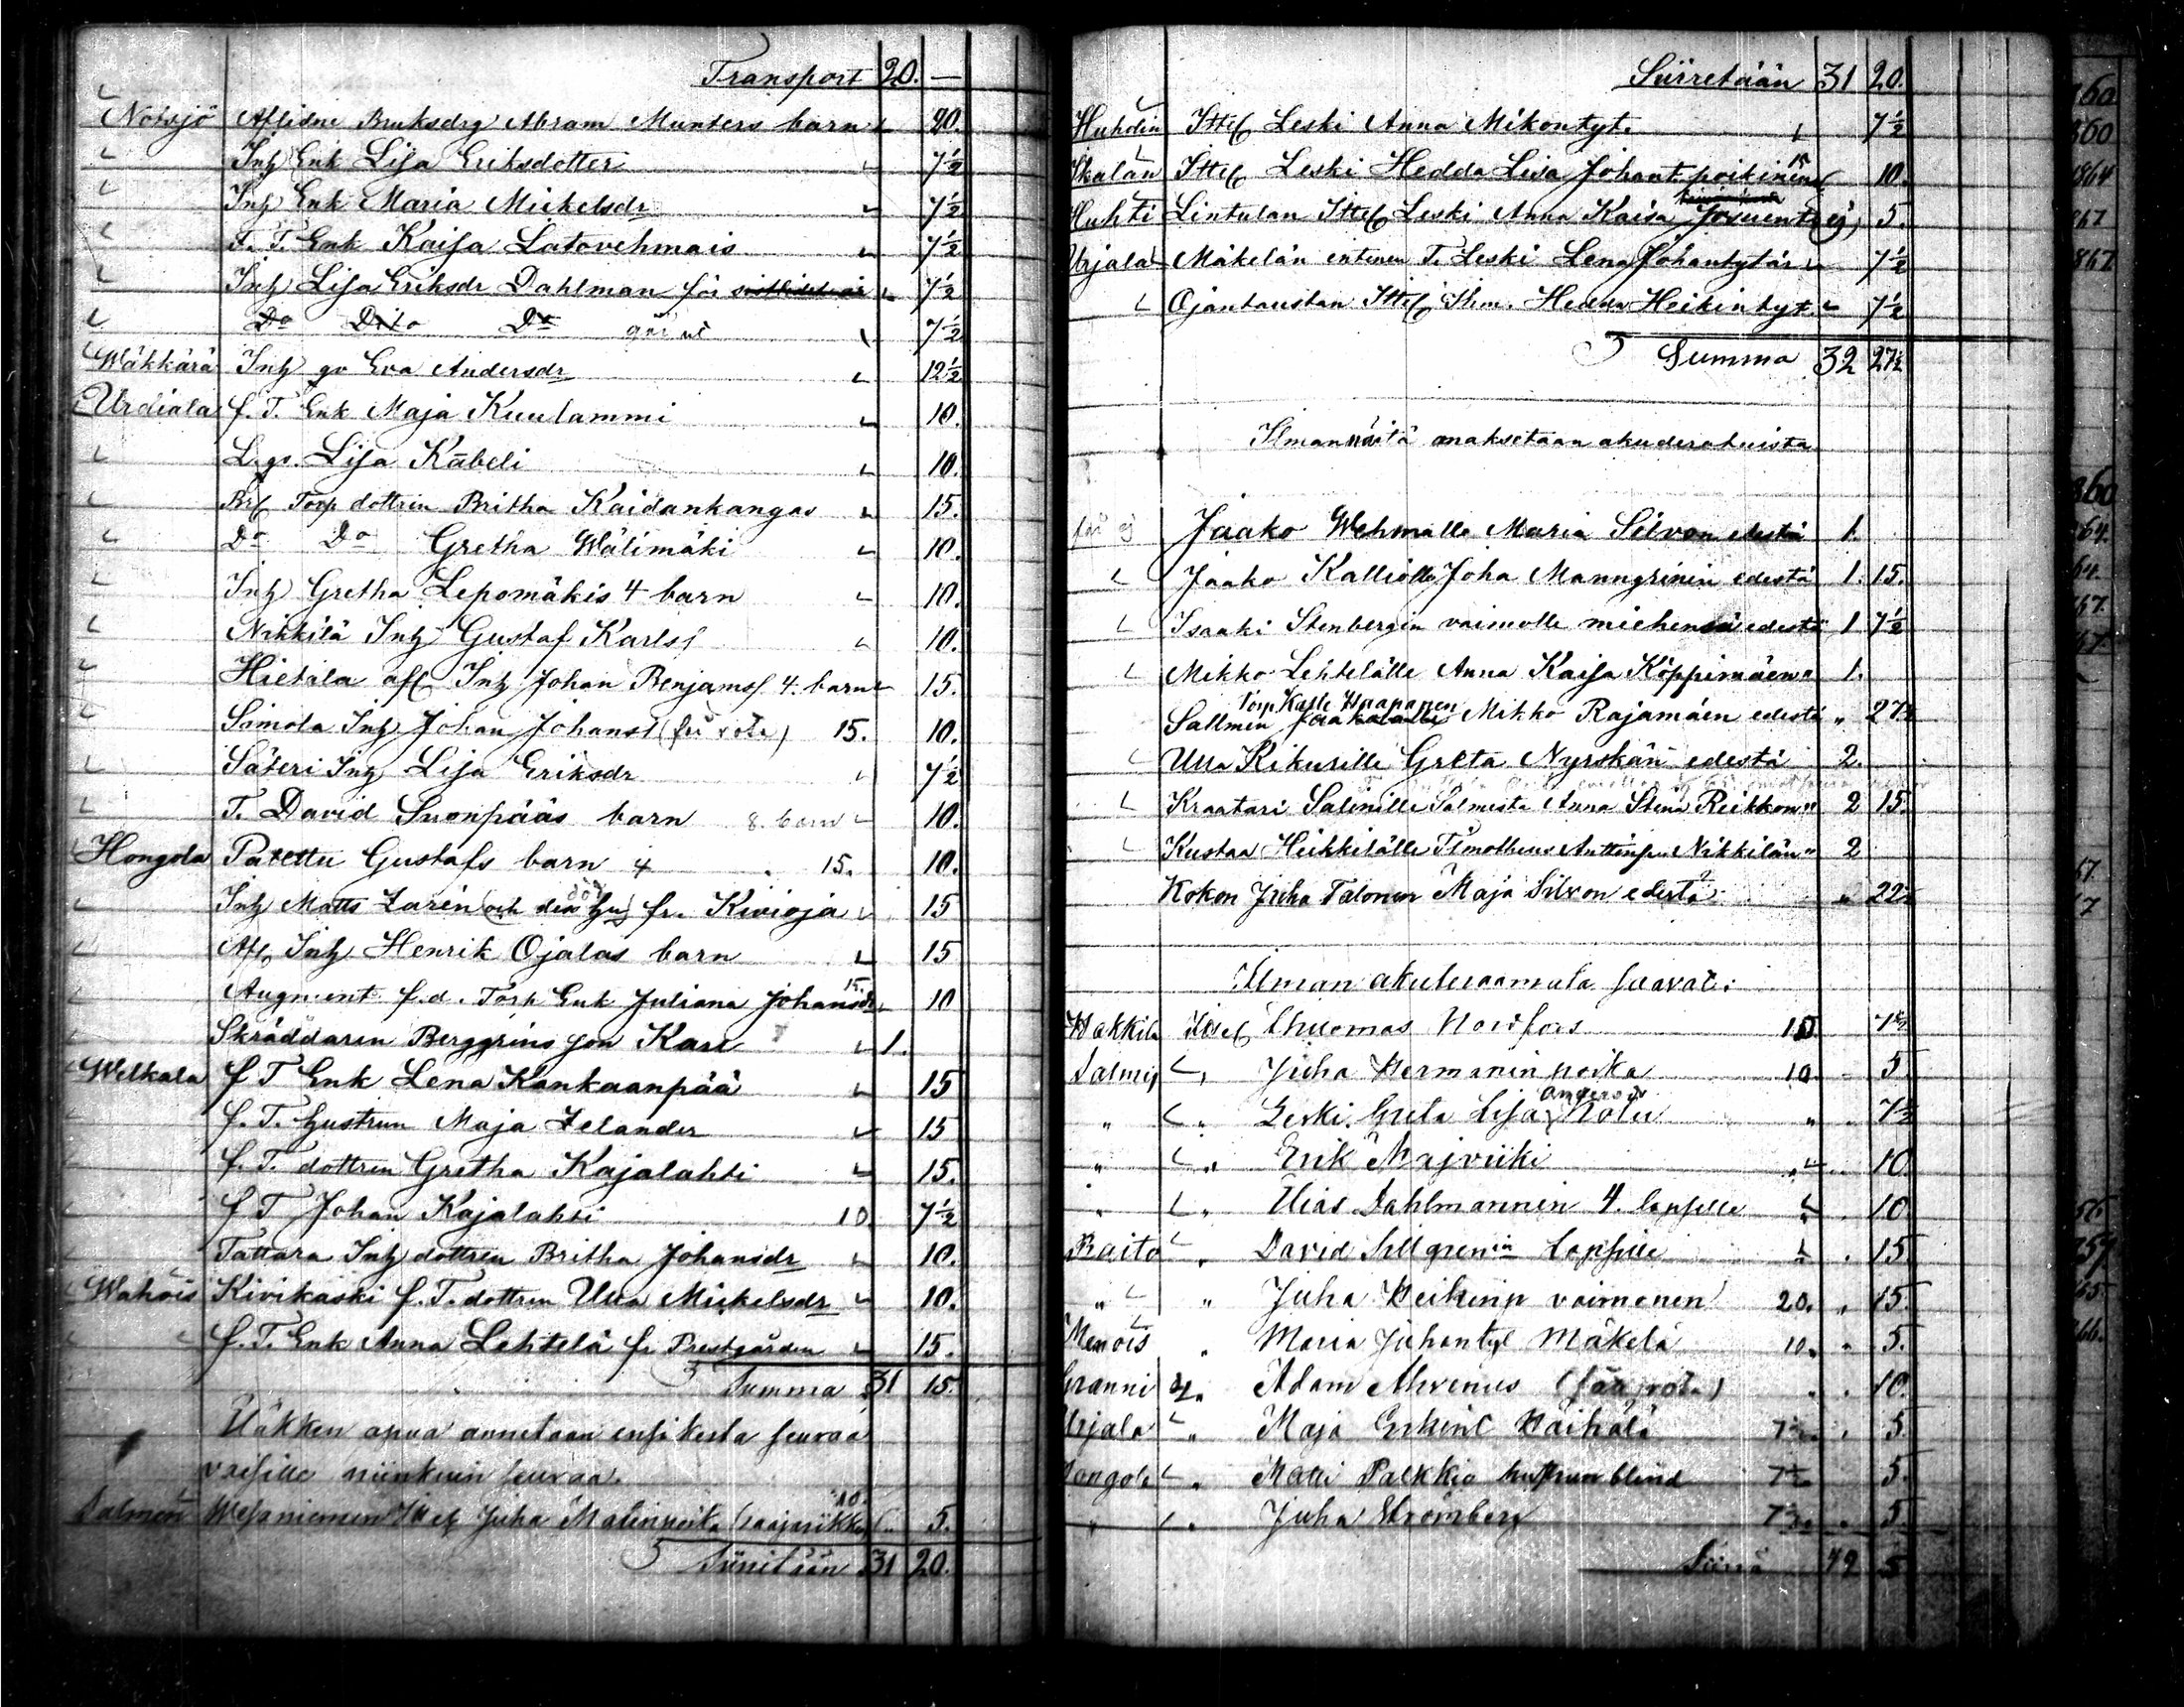 Transport 20. —
Notsjö Aflidne Bruksdrg Abram Munters barn 20.
Inh Enk Lisa Eriksdotter 7½
Inh Enk Maria Mickelsdr 7½
F. T. Enk Kaisa Latovehmais 7½
Inh Lisa Eriksdr Dahlman får 7½
Do Dito Do 7½
Wäkkärä Inh gu Eva Andersdr 12½
Urdiala f. T. Enk Maja Kuulammi 10.
L. gs. Lisa Kåbeli 10.
Torp dottren Britha Kaidankangas 15.
Do Do Gretha Wälimäki 10.
Inh Gretha Lepomäkis 4 barn 10.
Nikkilä Inh Gustaf Karlss 10.
Hietala afl Inh Johan Benjamss 4. barn 15.
Simola Inh Johan Johanss (fri rote) 15. 10.
Säteri Inh Lisa Eriksdr 7½
T. David Suonpääs barn 8. barn 10.
Hongola Gustafs barn 4 15. 10.
Inh Matts Zarén (och dess hu) fr. Kivioja 15
död
Afl Inh Henrik Ojalas barn 15
15.
Augment f.d. Torp Enk Juliana Johansdr 10
Skräddaren Berggrins son Karl 1.
Welkala f T Enk Lena Kankaanpää 15
f. T. hustrun Maja Zelander 15
f. T. dottren Gretha Kajalahti 15.
f T Johan Kajalahti 10 7½
Tattara Inh dottren Britha Johansdr 10.
Wahois Kivikaski f. T. dottren Ulla Mickelsdr 10.
f. T. Enk Anna Lehtelä fr Prestgården 15.
Summa 31 15.
apua annetaan ensikerta seuraa
niinkuin seuraa.
10.
Salmen Wesaniemen Itsel Juha Matinpoika 5.
Siirretään 31 20.
Siirretään 31 20.
Huhdin Ittel Leski Anna Mikontyt. 7½
15
Skalan Ittel Leski Hedda Lisa Johant. 10.
Huhti Lintulan Ittel Leski Anna Kaisa 5.
Urjala Mäkelän entinen T. Leski Lena Johantytär 7½
Ojantaustan Ittel Ihm. Hedda Heikintyt. 7½
Summa 32 27½
Ilman näitä maksetaan akuderatuista
får ej Jaako Wehmalle Maria Silvon edestä 1.
Jaako Kalliolle Joha Manngrinin edestä 1. 15.
Isaaki Stenbergin vaimolle miehensä edestä 1 7½
Mikko Lehtelälle Anna Kaisa Köppimäen " 1.
Torp Kalle Haapanen
Sallmen Mikko Rajamäen edestä " 27½
Ulla Kikurille Greta Nyrskän edestä 2.
Kraatari Salinille Salmesta Anna Stina Reikkon " 2 15.
Kustaa Heikkilälle Timotheus Anttinpoa Nikkilän " 2
Kokon Juha Talonen Maja Silvon edestä " 22½
Ilman saavat:
Hakkila Itsel Thuomas Norfors 10 7½
Salmi Juha Hermanin poika 10 5.
Anders
" Leski Greta Lisa " 7½
" Erik 10.
" Elias Dahlmannin 4. lapselle 10.
Raito David Sillgrenin lapsille 15.
" Juha Heikinp vaimonen 20. 15.
Menois Maria Juhantyt Mäkelä 10. 5.
Granni Adam Ahrenius 10.
Urjala Maja 7½ 5.
Matti Palkkio hustrun blind 7½ 5.
" Juha Strömberg 7½ 5.
Siirrä 49 5